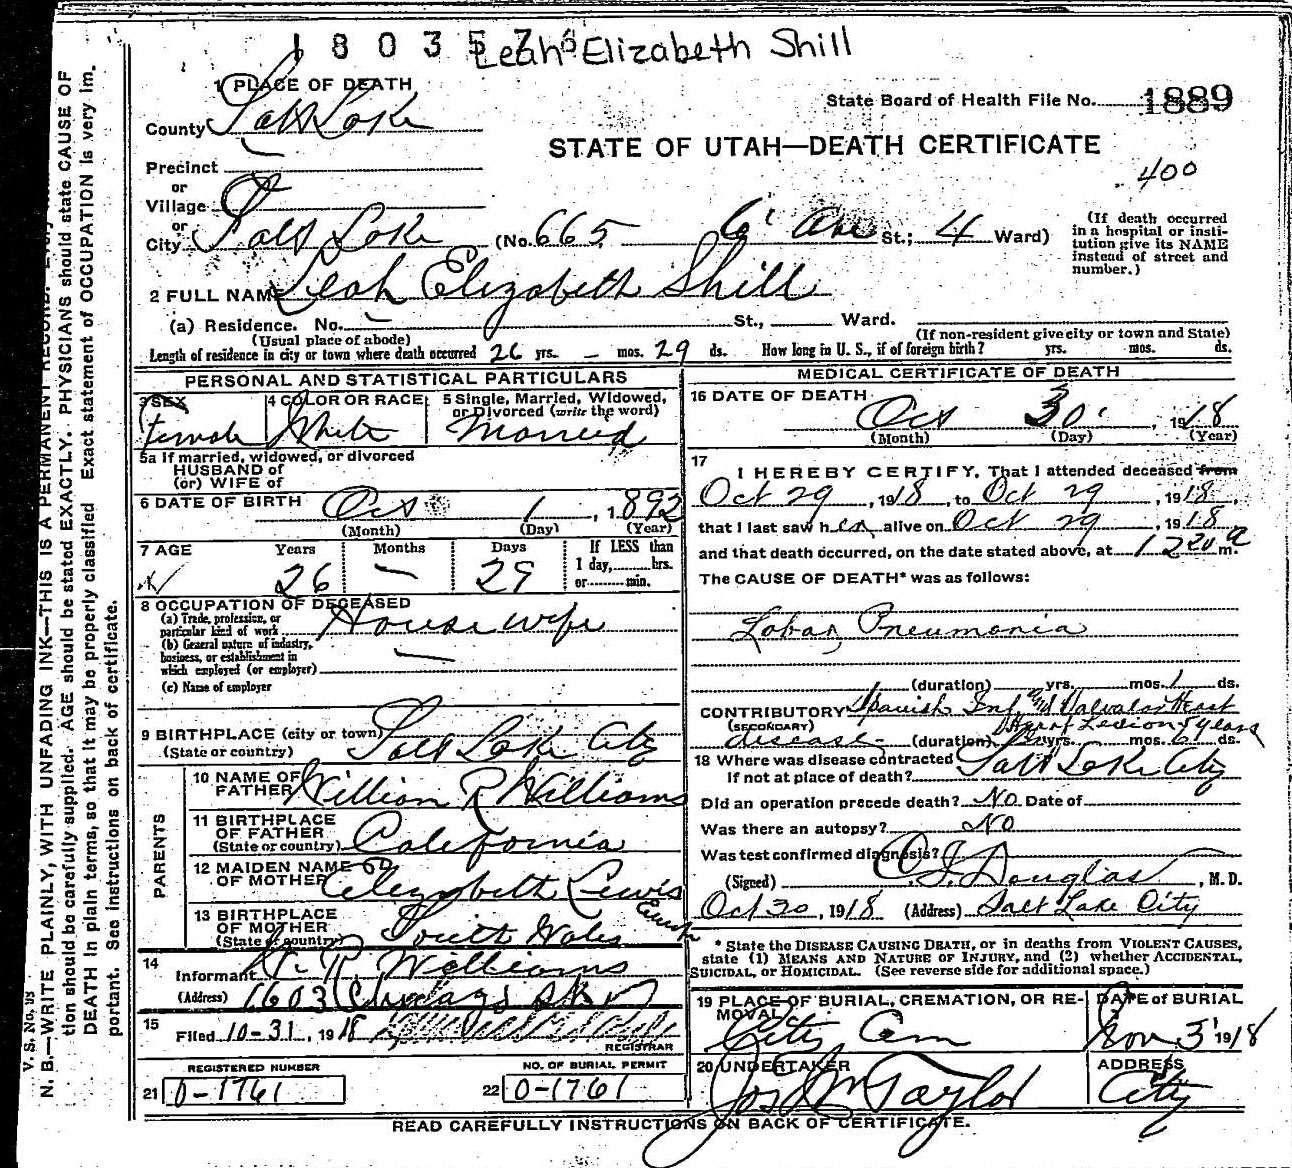 1 8 0 3 5 7 6
Leah Elizabeth Shill
1 PLACE OF DEATH
County Salt Lake
State Board of Health File No. 1889
STATE OF UTAH—DEATH CERTIFICATE
400
Precinct
or
Village
or
City Salt Lake (No. 665 6' Ave St.; 4 Ward)
(If death occurred in a hospital or insti-
tution give its NAME
instead of street and
number.)
2 FULL NAME Leah Elizabeth Shill
(a) Residence. No. St., Ward.
(Usual place of abode) (If non-resident give city or town and State)
Length of residence in city or town where death occurred 26 yrs. — mos. 29 ds. How long in U. S., if of foreign birth? yrs. mos. ds.
PERSONAL AND STATISTICAL PARTICULARS
3 SEX Female
4 COLOR OR RACE White
5 Single, Married, Widowed,
or Divorced (write the word)
Married
5a If married, widowed, or divorced
HUSBAND of
(or) WIFE of
6 DATE OF BIRTH Oct 1, 1892
(Month) (Day) (Year)
7 AGE Years Months Days If LESS than
26 — 29 1 day, hrs.
or min.
8 OCCUPATION OF DECEASED
(a) Trade, profession, or
particular kind of work House wife
(b) General nature of industry,
business, or establishment in
which employed (or employer) —
(c) Name of employer
9 BIRTHPLACE (city or town) Salt Lake City
(State or country)
PARENTS
10 NAME OF
FATHER William R Williams
11 BIRTHPLACE
OF FATHER
(State or country) California
12 MAIDEN NAME
OF MOTHER Elizabeth Lewis
13 BIRTHPLACE
OF MOTHER
(State or country) South Wales
14
Informant W. R. Williams
(Address) 1603
15
Filed 10-31, 1918
REGISTRAR
REGISTERED NUMBER NO. OF BURIAL PERMIT
21 0-1761 22 0-1761
MEDICAL CERTIFICATE OF DEATH
16 DATE OF DEATH
Oct 30, 1918
(Month) (Day) (Year)
17
I HEREBY CERTIFY, That I attended deceased from
Oct 29, 1918, to Oct 29, 1918,
that I last saw her alive on Oct 29, 1918
and that death occurred, on the date stated above, at 12 20 a m.
The CAUSE OF DEATH* was as follows:
Lobar Pneumonia
(duration) yrs. mos. 1 ds.
CONTRIBUTORY Spanish Inf and Valvular Heart
(SECONDARY) Heart Lesion 5 years
disease (duration) yrs. mos. 6 ds.
18 Where was disease contracted
If not at place of death? Salt Lake City
Did an operation precede death? No Date of
Was there an autopsy? No
Was test confirmed diagnosis?
(Signed) Douglas, M. D.
Oct 30, 1918 (Address) Salt Lake City
* State the DISEASE CAUSING DEATH, or in deaths from VIOLENT CAUSES,
state (1) MEANS AND NATURE OF INJURY, and (2) whether ACCIDENTAL,
SUICIDAL, or HOMICIDAL. (See reverse side for additional space.)
19 PLACE OF BURIAL, CREMATION, OR RE-
MOVAL City Cem
DATE of BURIAL
Nov 3' 1918
20 UNDERTAKER
Jos Wm Taylor
ADDRESS
City
READ CAREFULLY INSTRUCTIONS ON BACK OF CERTIFICATE.
V. S. No.
N. B.—WRITE PLAINLY, WITH UNFADING INK—THIS IS A PERMANENT RECORD.
tion should be carefully supplied. AGE should be stated EXACTLY. PHYSICIANS should state CAUSE OF
DEATH in plain terms, so that it may be properly classified Exact statement of OCCUPATION is very im-
portant. See instructions on back of certificate.